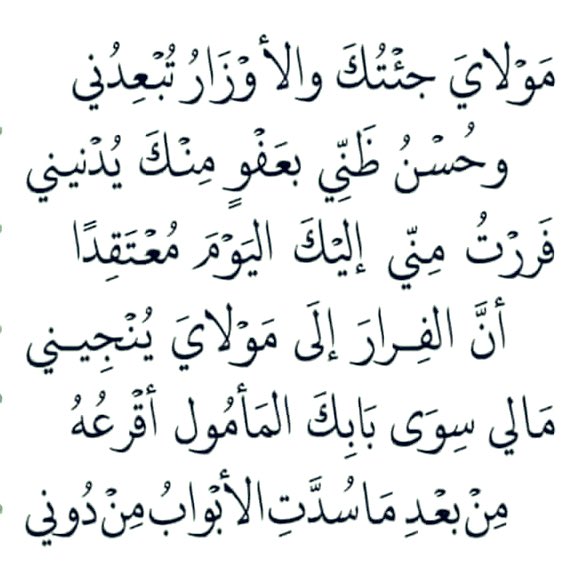 مَوْلايَ جِئْتُكَ والأوْزَارُ تُبْعِدُني
وحُسْنُ ظَنِّي بعَفْوٍ مِنْكَ يُدْنيـني
فَررْتُ مِنّي إليْكَ اليَوْمَ مُعْتَقِدًا
أنَّ الفِـرارَ إلَى مَوْلايَ يُنْجِيـني
مَالي سِوَى بَابِكَ المَأمُول أقْرعُهُ
مِنْ بعْدِ مَا سُدَّتِ الأبْوابُ مِنْ دُوني